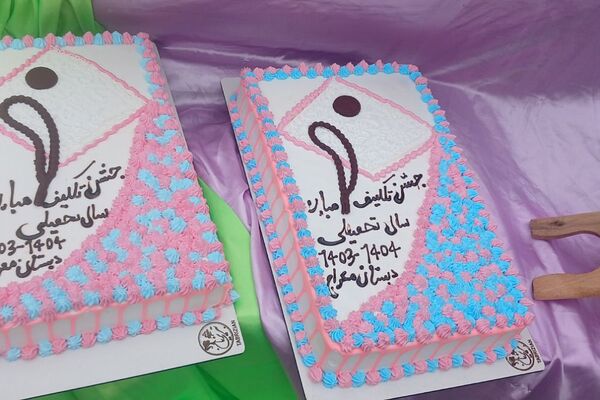 جشن تکلیف مبارک
سال تحصیلی
1403-1404
دبستان معراج
جشن تکلیف مبارک
سال تحصیلی
1403-1404
دبستان معراج